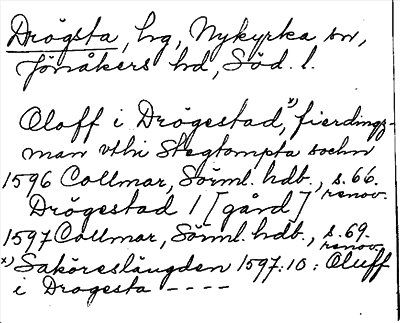 Drögsta, hg, Nykyrka sn,
Jönåkers hd, Söd. l.
Oloff i Drögestad,x) fierdingz-
man vthi Stegtompta sochn
1596 Collmar, Sörml. hdb., s. 66.
renov.
Drögestad 1 [gård]
1597 Collmar, Sörml. hdb., s. 69.
renov.
x) Saköreslängden 1597:10: Oluff
i Drogesta - - - -